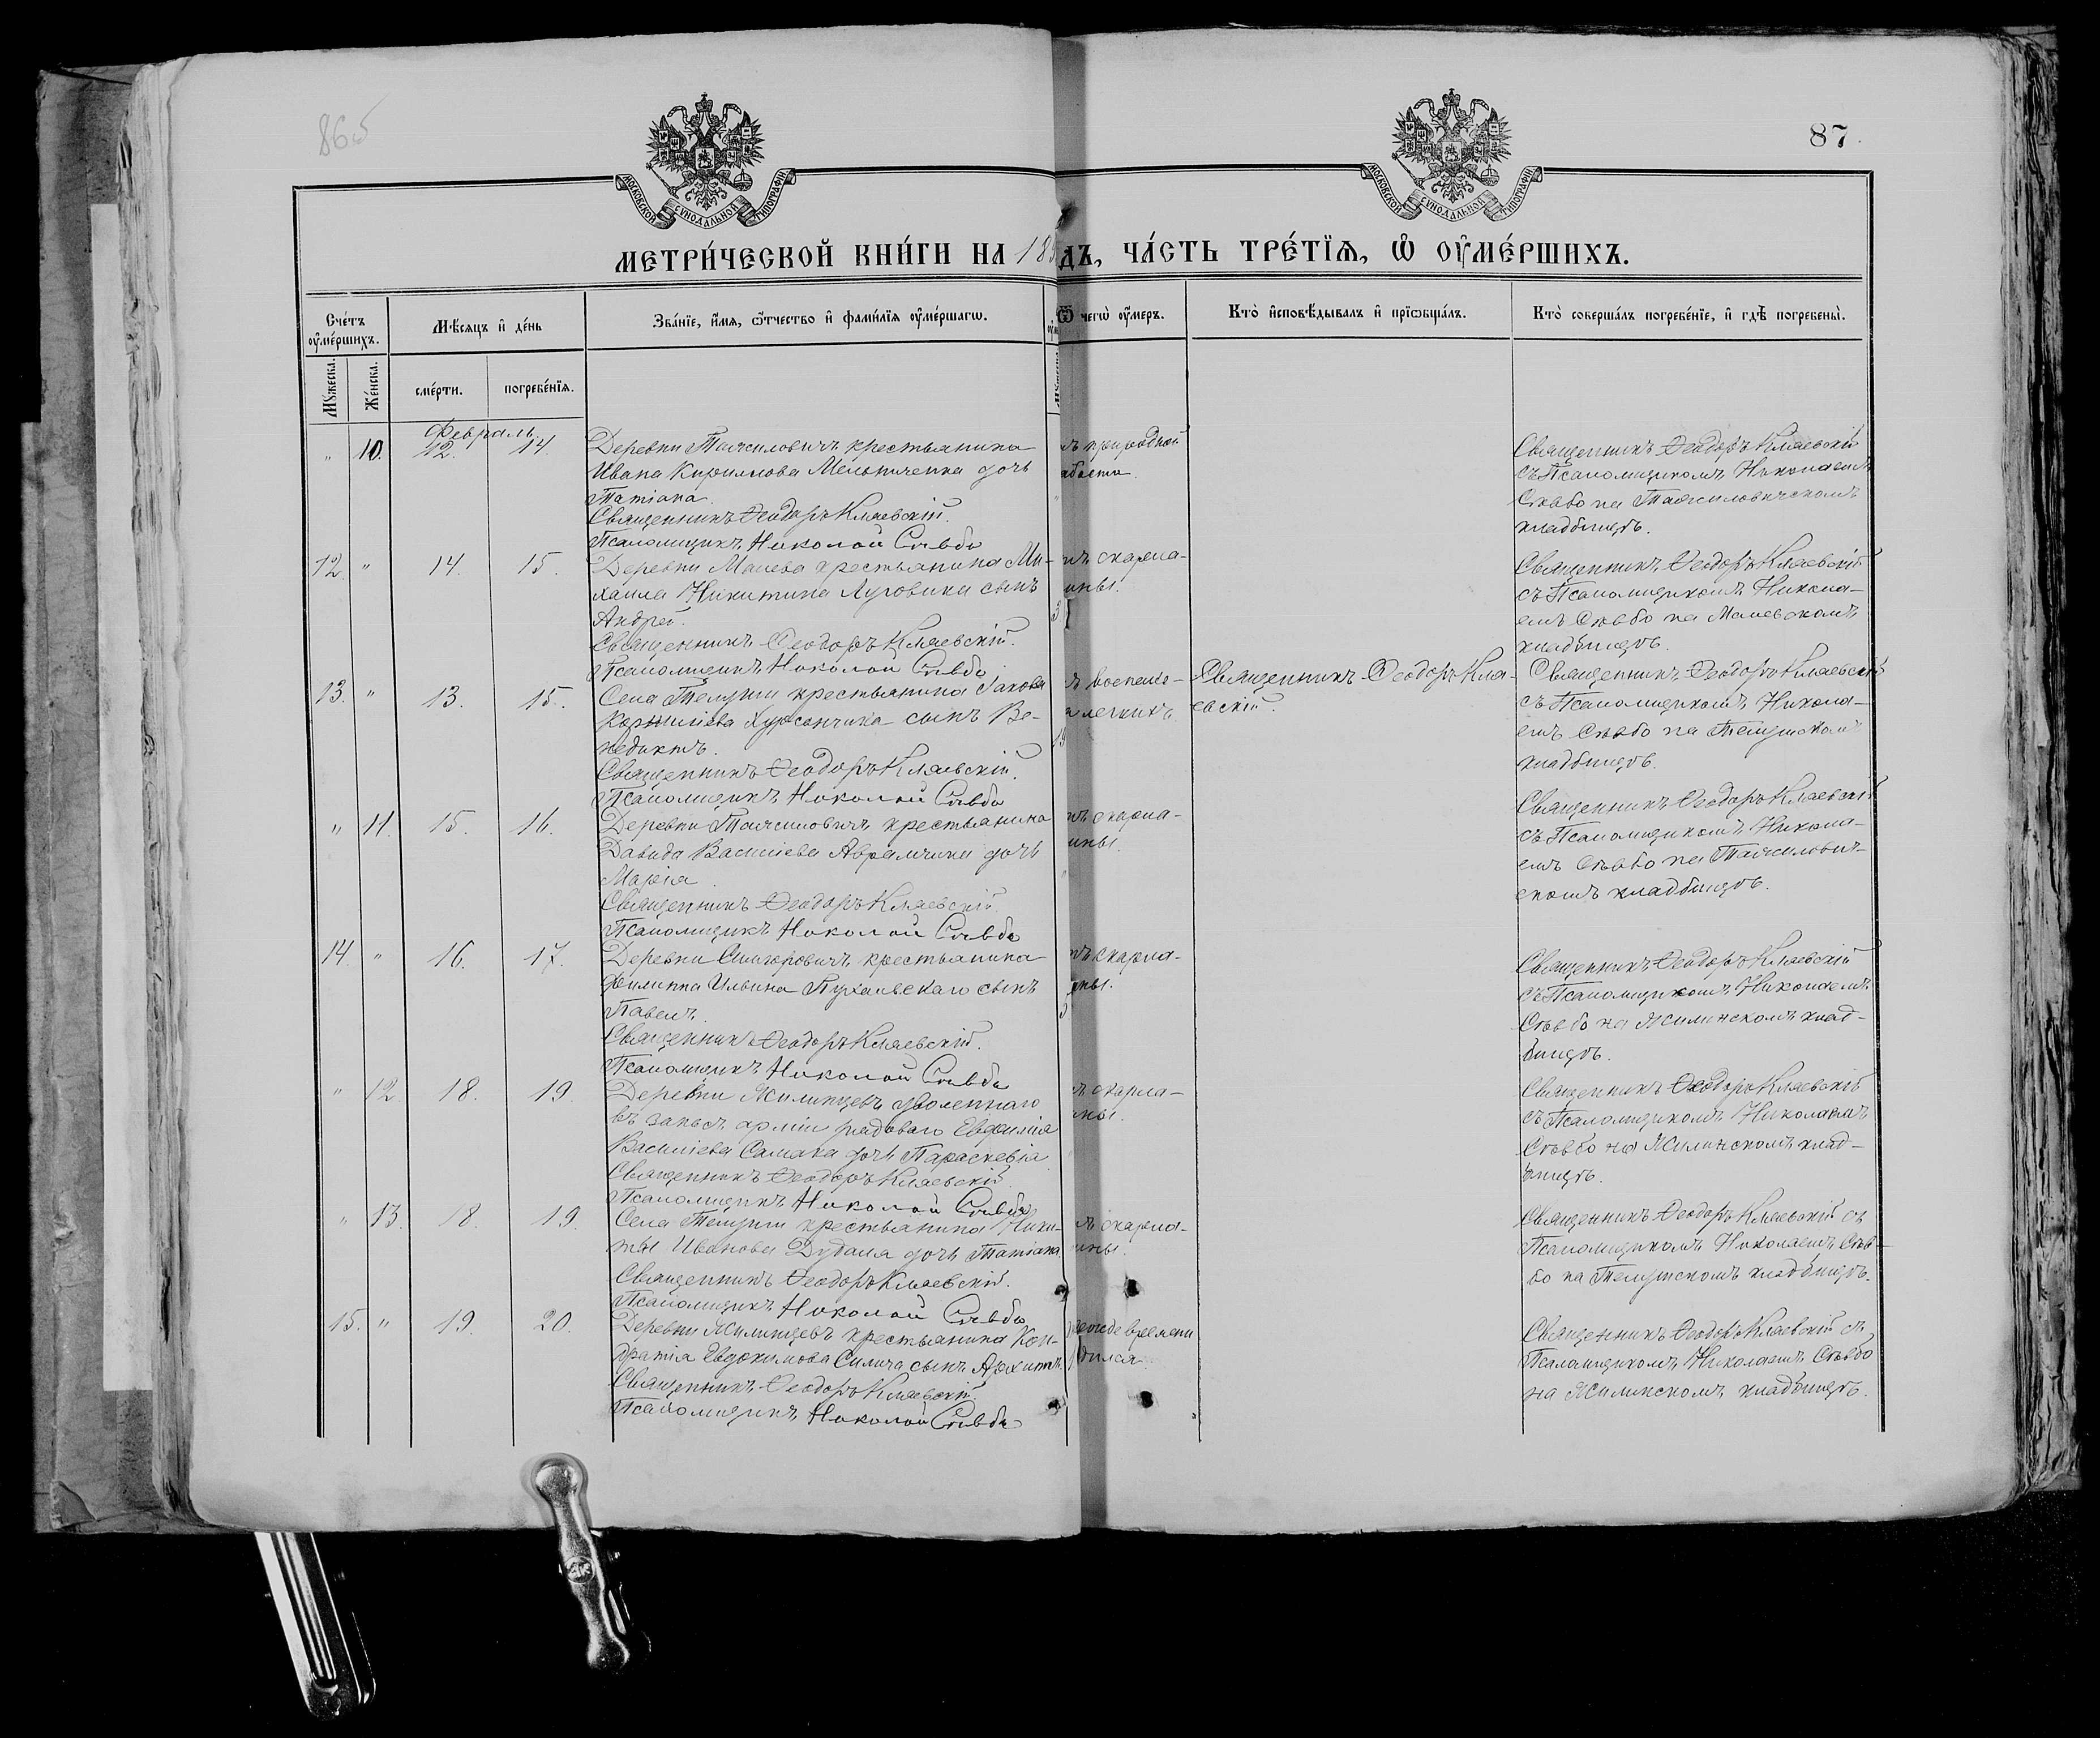 86об
87
МОСКОВСКОЙ СѴНОДАЛЬНОЙ ТИПОГРАФІИ
МОСКОВСКОЙ СѴНОДАЛЬНОЙ ТИПОГРАФІИ
МЕТРИ́ЧЕСКОЙ КНИ́ГИ НА 189
ДЪ, ЧА́СТЬ ТРЕ́ТЇѦ, Ѡ҆ ОУ҆МЕ́РШИХЪ.
Сче́тъ оу҆ме́ршихъ.
Мѣ́сѧцъ и҆ де́нь
Зва́нїе, и҆́мѧ, ѻ҆́тчество и҆ фами́лїѧ оу҆ме́ршагѡ.
Ѿ чегѡ̀ оу҆́меръ.
Кто̀ и҆сповѣ́дывалъ и҆ прїѡбща́лъ.
Кто̀ соверша́лъ погребе́нїе, и҆ гдѣ̀ погребены̀.
Мꙋ́жеска.
Же́нска.
сме́рти.
погребе́нїѧ.
Февраль
" 10. 12. 14.
Деревни крестьянина
Ивана Кириллова Мельниченка дочь
Татіана.
Священникъ Ѳеодоръ Кляевскій.
Псаломщикъ Николай Сѣвбо
ъ природной
абости.
Священникъ Ѳеодоръ Кляевскій
съ Псаломщикомъ Николаемъ
Сѣвбо на
кладбищѣ.
12. " 14. 15.
Деревни Малева крестьянина Ми-
хаила Никитина Луговика сынъ
Андрей.
Священникъ Ѳеодоръ Кляевскій.
Псаломщикъ Николай Сѣвбо
ъ скарла-
ины.
3
Священникъ Ѳеодоръ Кляевскій
съ Псаломщикомъ Никола-
емъ Сѣвбо на Малевскомъ
кладбищѣ.
13. " 13. 15.
Села Телуши крестьянина Іакова
Корниліева сынъ Ве-
недиктъ.
Священникъ Ѳеодоръ Кляевскій.
Псаломщикъ Николай Сѣвбо
ъ воспале-
легкихъ.
19
Священникъ Ѳеодоръ Кля-
евскій.
Священникъ Ѳеодоръ Кляевскій
съ Псаломщикомъ Никола-
емъ Сѣвбо на Телушскомъ
кладбищѣ.
" 11. 15. 16.
Деревни крестьянина
Давида Василіева Аврамчика дочь
Марія.
Священникъ Ѳеодоръ Кляевскій.
Псаломщикъ Николай Сѣвбо
ъ скарла-
ины.
Священникъ Ѳеодоръ Кляевскій
съ Псаломщикомъ Никола-
емъ Сѣвбо на
скомъ кладбищѣ.
14. " 16. 17.
Деревни крестьянина
Филиппа Ильина Пухальскаго сынъ
Павелъ.
Священникъ Ѳеодоръ Кляевскій.
Псаломщикъ Николай Сѣвбо
ъ скарла-
ины.
5
Священникъ Ѳеодоръ Кляевскій
съ Псаломщикомъ Николаемъ
Сѣвбо на Жилинскомъ клад-
бищѣ.
" 12. 18. 19.
Деревни Жилинцевъ уволеннаго
въ запасъ арміи рядоваго Евфимія
Василіева Самака дочь Параскевія.
Священникъ Ѳеодоръ Кляевскій.
Псаломщикъ Николай Сѣвбо
ъ скарла-
ины.
Священникъ Ѳеодоръ Кляевскій
съ Псаломщикомъ Николаемъ
Сѣвбо на Жилинскомъ клад-
бищѣ.
" 13. 18. 19.
Села Телуши крестьянина Ники-
ты Иванова Дудаля дочь Татіана.
Священникъ Ѳеодоръ Кляевскій.
Псаломщикъ Николай Сѣвбо
ъ скарла-
ины.
Священникъ Ѳеодоръ Кляевскій съ
Псаломщикомъ Николаемъ Сѣв-
бо на Телушскомъ кладбищѣ.
15. " 19. 20.
Деревни Жилинцевъ крестьянина Кон-
дратія Евдокимова Силича сынъ Архиппъ.
Священникъ Ѳеодоръ Кляевскій.
Псаломщикъ Николай Сѣвбо
времени
дился.
Священникъ Ѳеодоръ Кляевскій съ
Псаломщикомъ Николаемъ Сѣвбо
на Жилинскомъ кладбищѣ.